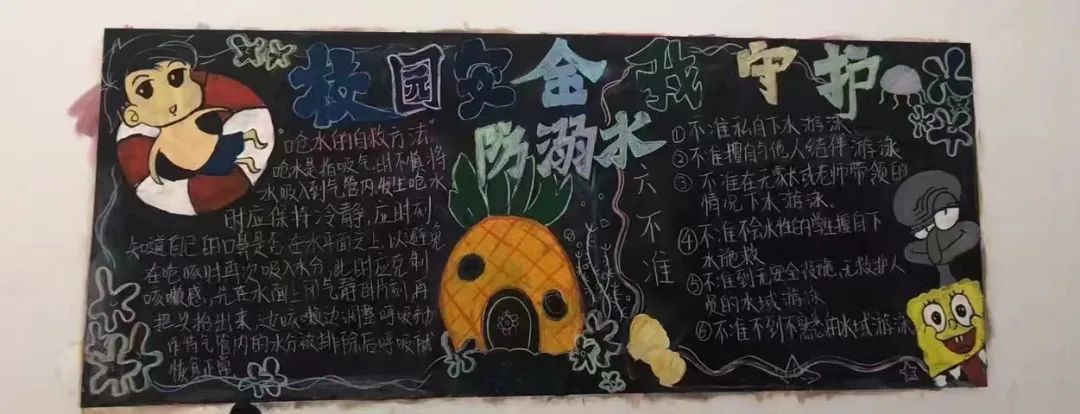 校园安全我守护
防溺水
"呛水的自救方法"
呛水是指吸气时不慎将
水吸入到气管内发生呛水
时应保持冷静,应时刻
知道自己的口鼻是否在水平面之上,以避免
在咳嗽时再次吸入水分,此时应克制
咳嗽感,先在水面上闭气静卧片刻,再
把头抬出来,边咳嗽边调整呼吸动
作待气管内的水分被排除后呼吸
恢复正常
六不准
①不准私自下水游泳
②不准擅自与他人结伴游泳
③不准在无家长或老师带领的
情况下水游泳.
④不准不会水性的学生擅自下
水施救
⑤不准到无安全设施,无救护人
员的水域游泳
⑥不准不到不熟悉的水域游泳